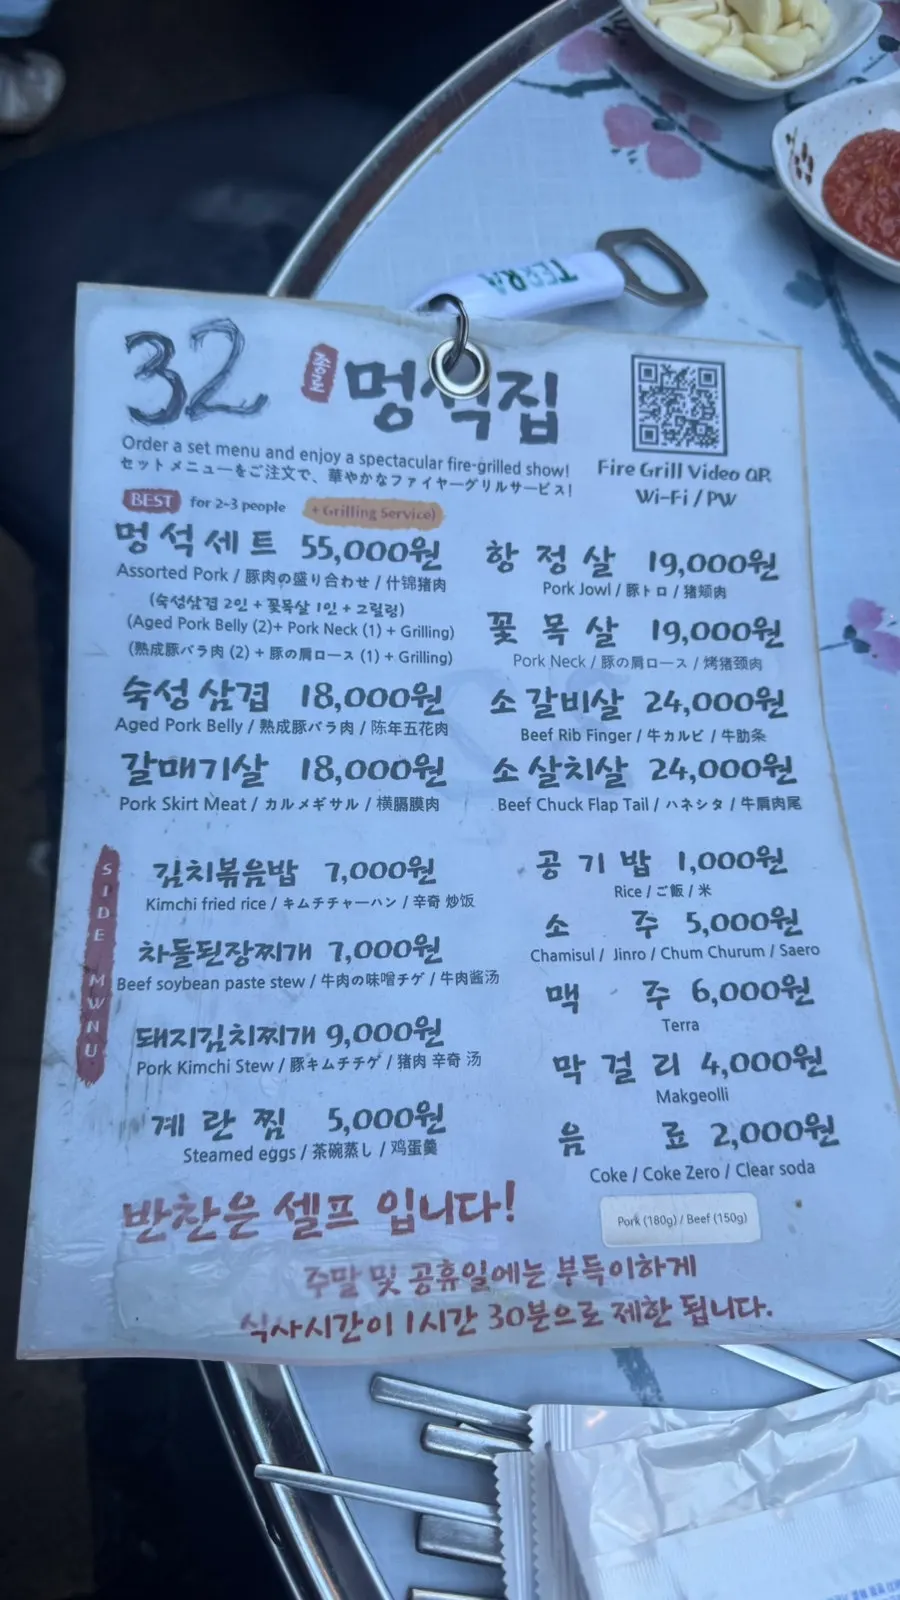 TERRA
32 종로 멍석집
Order a set menu and enjoy a spectacular fire-grilled show!
セットメニューをご注文で、華やかなファイヤーグリルサービス!
Fire Grill Video QR
Wi-Fi / PW
BEST for 2-3 people + Grilling Service)
멍석세트 55,000원
Assorted Pork / 豚肉の盛り合わせ / 什锦猪肉
(숙성삼겹 2인 + 꽃목살 1인 + 그릴링)
(Aged Pork Belly (2)+ Pork Neck (1) + Grilling)
(熟成豚バラ肉 (2) + 豚の肩ロース (1) + Grilling)
숙성삼겹 18,000원
Aged Pork Belly / 熟成豚バラ肉 / 陈年五花肉
갈매기살 18,000원
Pork Skirt Meat / カルメギサル / 横膈膜肉
항정살 19,000원
Pork Jowl / 豚トロ / 猪颊肉
꽃목살 19,000원
Pork Neck / 豚の肩ロース / 烤猪颈肉
소갈비살 24,000원
Beef Rib Finger / 牛カルビ / 牛肋条
소살치살 24,000원
Beef Chuck Flap Tail / ハネシタ / 牛肩肉尾
SIDE MWNU
김치볶음밥 7,000원
Kimchi fried rice / キムチチャーハン / 辛奇 炒饭
차돌된장찌개 7,000원
Beef soybean paste stew / 牛肉の味噌チゲ / 牛肉酱汤
돼지김치찌개 9,000원
Pork Kimchi Stew / 豚キムチチゲ / 猪肉 辛奇 汤
계란찜 5,000원
Steamed eggs / 茶碗蒸し / 鸡蛋羹
공기밥 1,000원
Rice / ご飯 / 米
소주 5,000원
Chamisul / Jinro / Chum Churum / Saero
맥주 6,000원
Terra
막걸리 4,000원
Makgeolli
음료 2,000원
Coke / Coke Zero / Clear soda
Pork (180g) / Beef (150g)
반찬은 셀프 입니다!
주말 및 공휴일에는 부득이하게
식사시간이 1시간 30분으로 제한 됩니다.